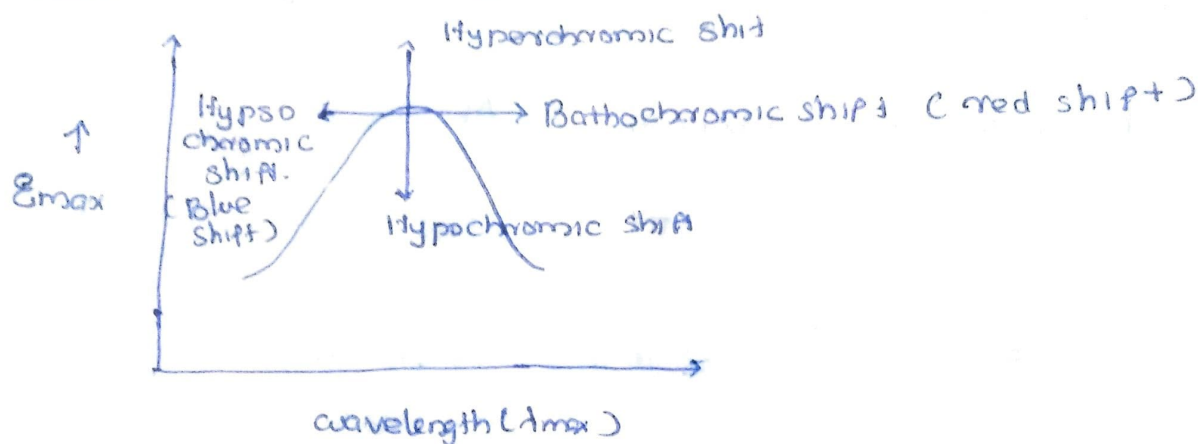 Hyperchromic shit
Hypso
chromic
shift.
(Blue
shift)
Bathochromic shift (red shift)
↑
Emax
Hypochromic shift
wavelength (λmax)